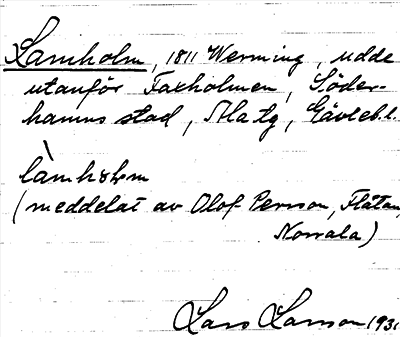 Lamholm, 1811 Werming, udde
utanför Faxholmen, Söder-
hamns stad, Ala tg, Gävleb.l.
làmhɵlm
(meddelat av Olof Persson, Flåtan,
Norrala)
Lars Larsson 1931